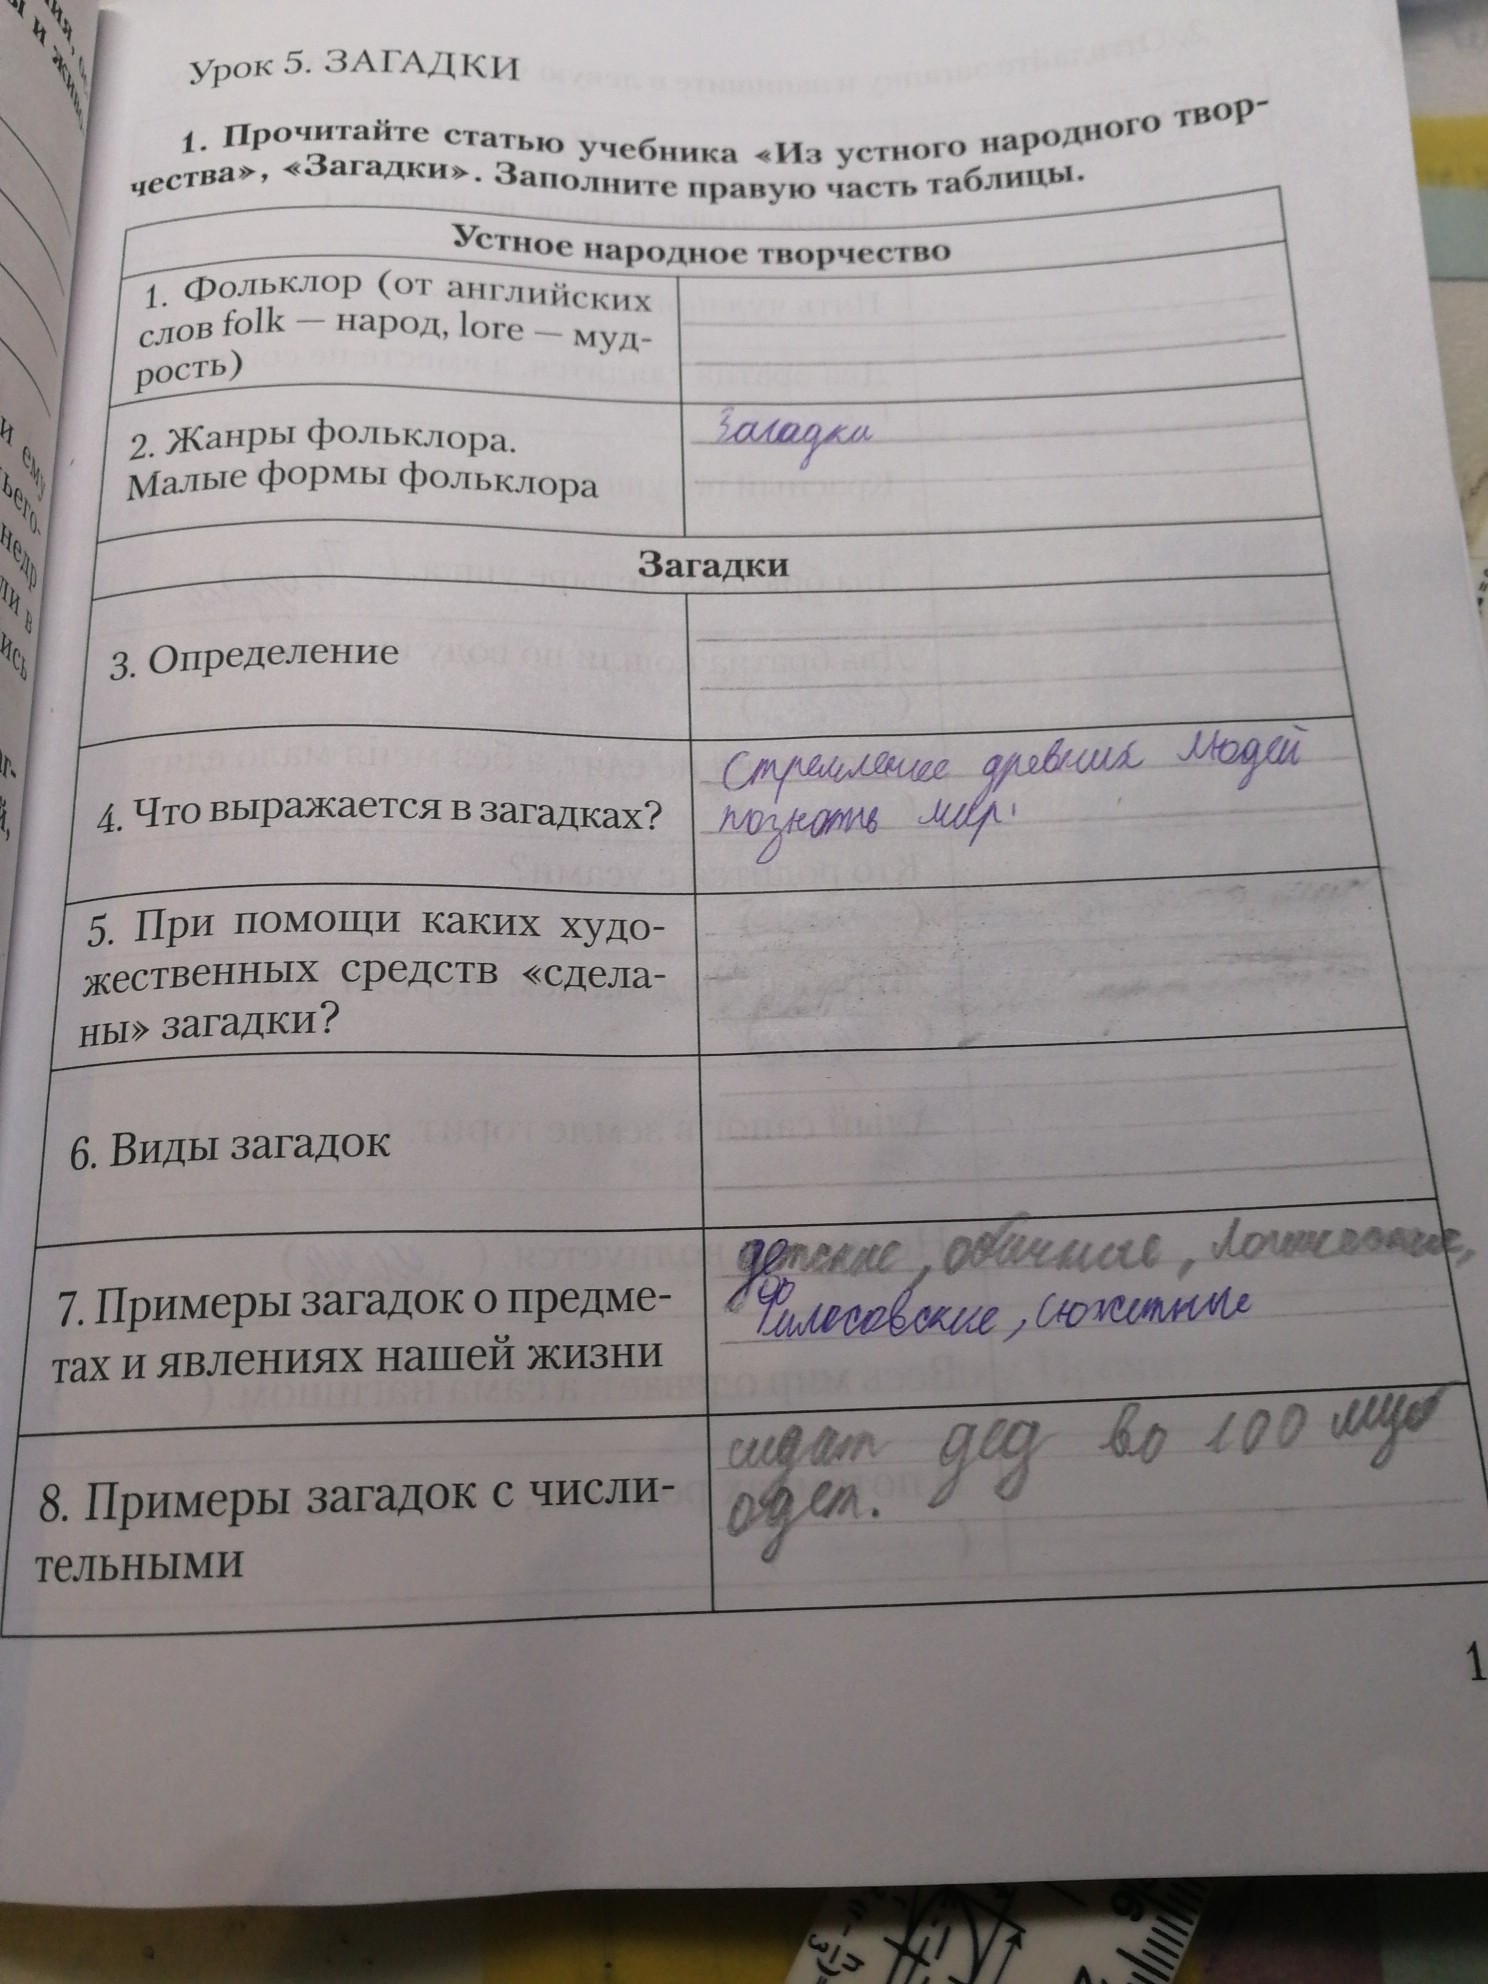 Урок 5. ЗАГАДКИ
1. Прочитайте статью учебника «Из устного народного твор-
чества», «Загадки». Заполните правую часть таблицы.
Устное народное творчество
1. Фольклор (от английских
слов folk — народ, lore — муд-
рость)
2. Жанры фольклора.
Малые формы фольклора
Загадки
Загадки
3. Определение
4. Что выражается в загадках?
Стремление древних людей
познать мир.
5. При помощи каких худо-
жественных средств «сдела-
ны» загадки?
6. Виды загадок
7. Примеры загадок о предме-
тах и явлениях нашей жизни
детские, обычные, логические,
Филосовские, сюжетные
8. Примеры загадок с числи-
тельными
дед во 100 шуб
одет.
1